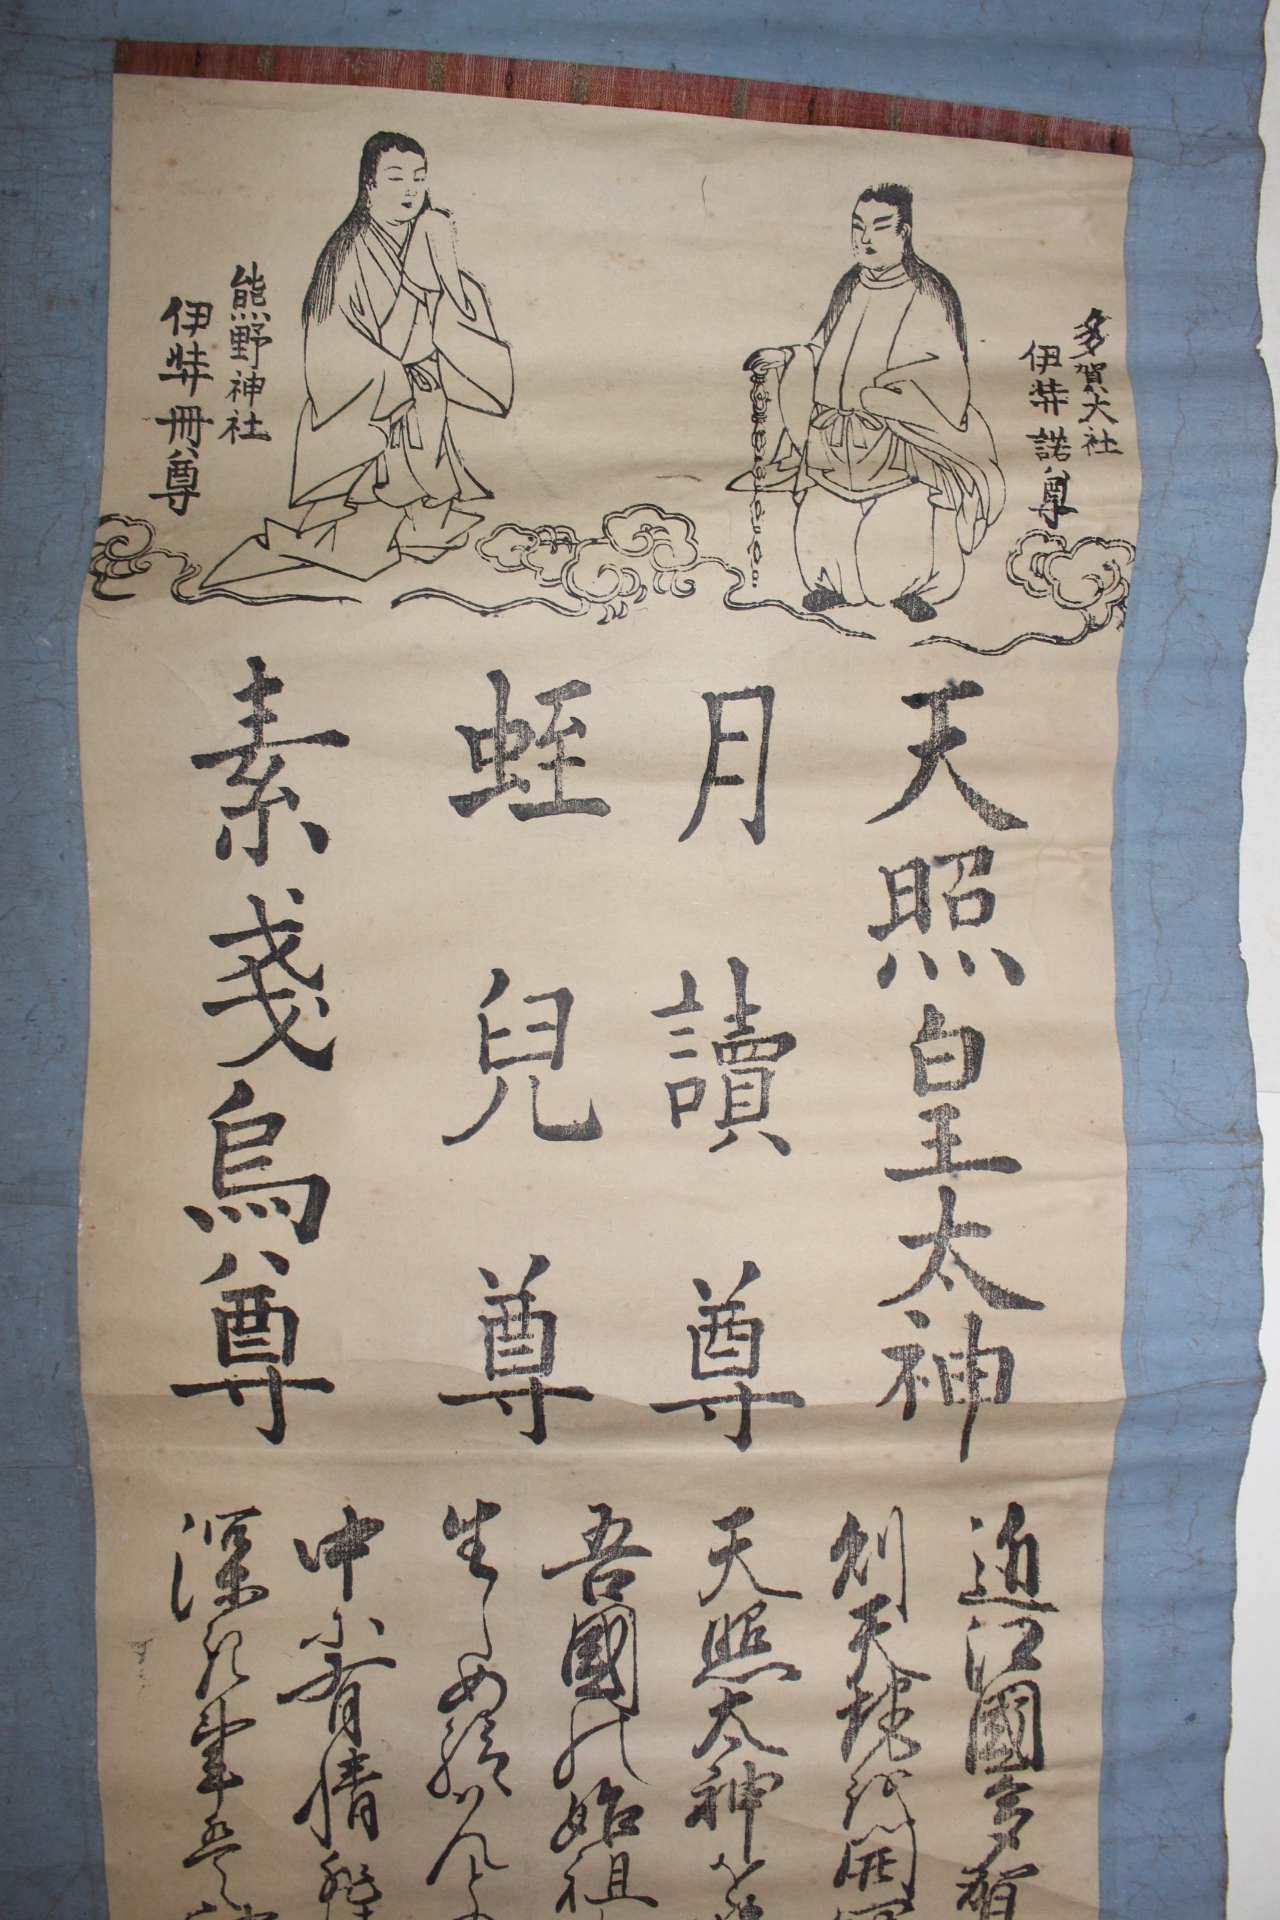 多賀大社
伊弉諾尊
熊野神社
伊弉冊尊
天照皇太神
月讀尊
蛭兒尊
素戔烏尊
近江國多賀
則天地
天照太神を
吾國の始祖
生し
中に有情
深